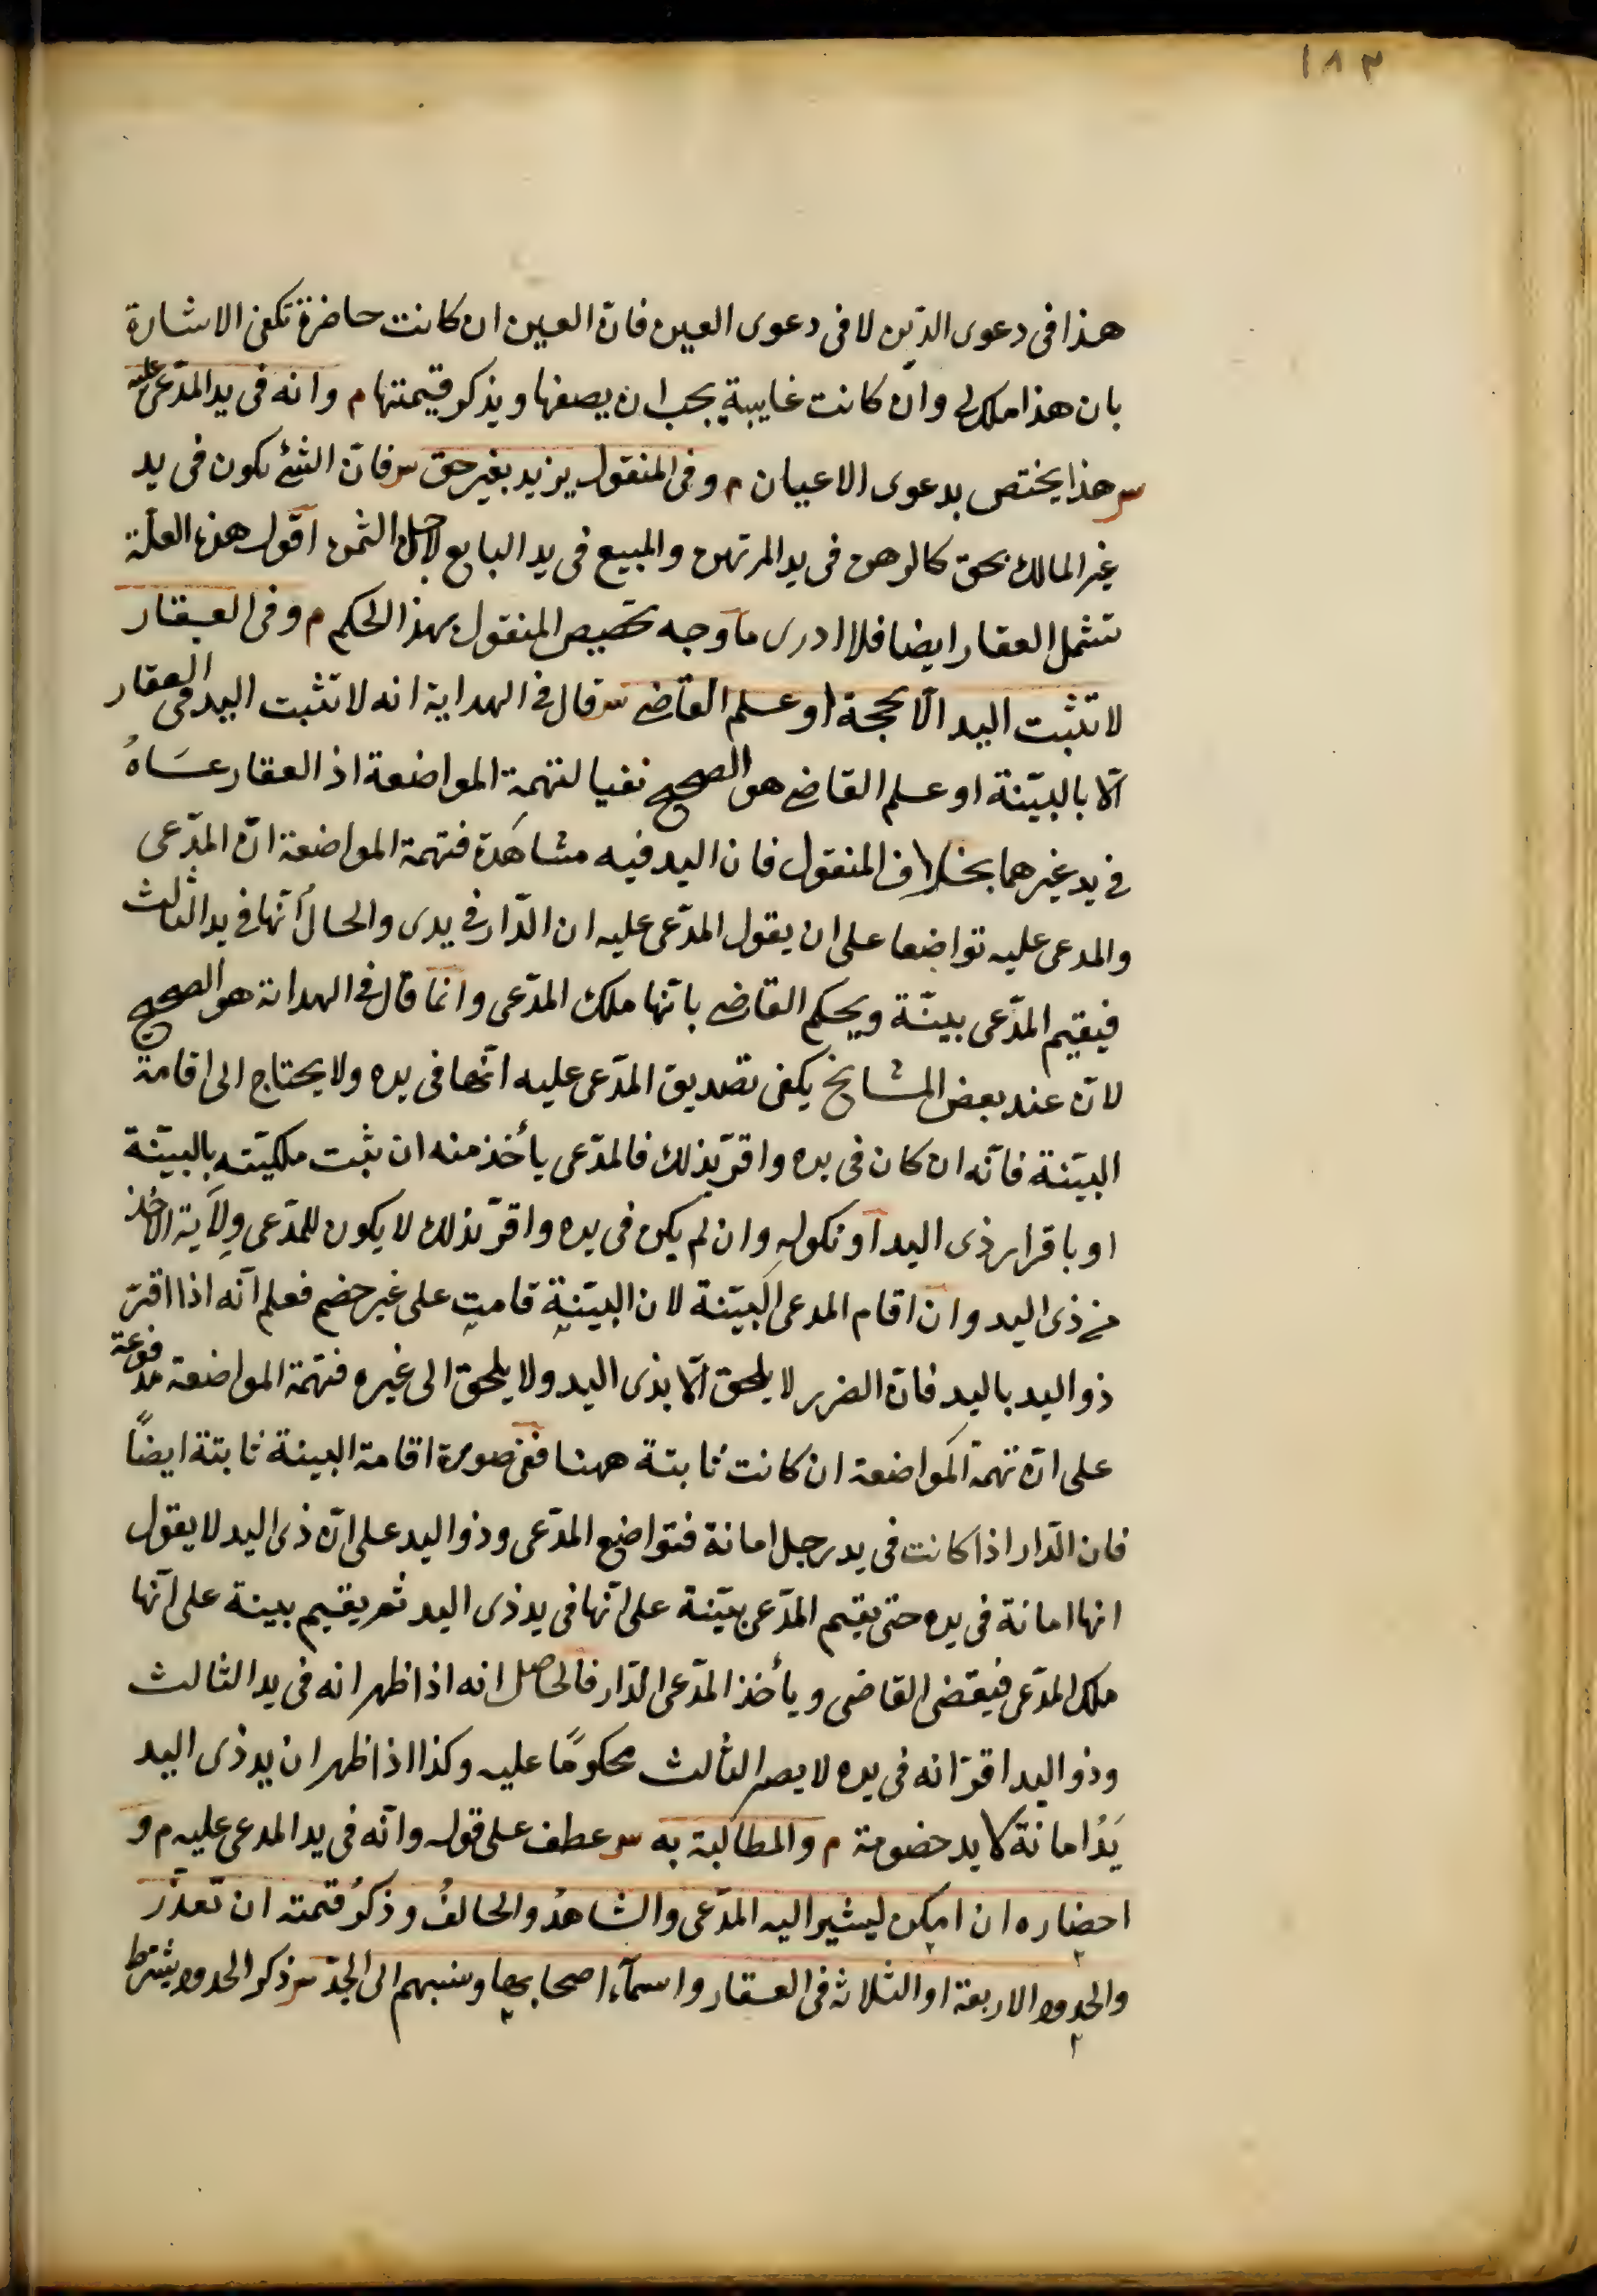 ١٨٣
هذا فى دعوى الدّين لا فى دعوى العين فانّ العين ان كانت حاضرة تكفى الاشارة
بان هذا ملك لى وان كانت غايبة يجب ان يصفها ويذكر قيمتها م وانه فى يد المدّعى عليه
س هذا يختص بدعوى الاعيان م وفى المنقول يزيد بغير حق س فانّ الشئ يكون فى يد
غير المالك بحق كالرهن فى يد المرتهن والمبيع فى يد البايع لاجل الثمن اقول هذه العلّة
تشمل العقار ايضا فلا ادرى ما وجه تخصيص المنقول بهذا الحكم م وفى العقار
لا تثبت اليد الّا بحجة او علم القاضى س قال فى الهداية انه لا تثبت اليد فى العقار
الّا بالبيّنة او علم القاضى هو الصحيح نفيا لتهمة المواضعة اذ العقار عسَاهُ
فى يد غيرهما بخلاف المنقول فان اليد فيه مشاهَدة فتهمة المواضعة انّ المدّعى
والمدعى عليه تواضعا على ان يقول المدّعى عليه ان الدّار فى يدى والحالُ أنّها فى يد الثالث
فيقيم المدّعى بينّة ويحكم القاضى بانّها ملك المدّعى وانّما قال فى الهداية هو الصحيح
لانّ عند بعض المشايخ يكفى تصديق المدّعى عليه انّها فى يده ولا يحتاج الى اقامة
البيّنة فانّه ان كان فى يده واقرّ بذلك فالمدّعى يأخذ منه ان ثبت ملكيّته بالبيّنة
او باقرار ذى اليد او نكولهِ وان لم يكن فى يده واقرّ بذلك لا يكون للمدّعى وِلاَية الاخذ
من ذى اليد وان اقام المدعى البيّنة لان البيّنة قامت على غير خصم فعلم انّه اذا اقرّ
ذو اليد باليد فانّ الضرر لا يلحق الّا بذى اليد ولا يلحق الى غيره فتهمة المواضعة مدفوعة
على انّ تهمة المواضعة ان كانت ثابتة ههنا ففى صورة اقامة البينة ثابتة ايضاً
فان الدّار اذا كانت فى يد رجل امانة فتواضع المدّعى وذو اليد على انّ ذى اليد لا يقول
انها امانة فى يده حتى يقيم المدّعى بيّنة على انّها فى يد ذى اليد ثم يقيم بينة على انّها
ملك المدّعى فيقضى القاضى ويأخذ المدّعى الدّار فالحاصل انه اذا ظهر انه فى يد الثالث
وذو اليد اقرّ انه فى يده لا يصير الثالث محكومًا عليه وكذا اذا ظهر ان يد ذى اليد
يَدُ امانة لا يد خصومة م والمطالبة به س عطف على قوله وانّه فى يد المدعى عليه م و
احضاره ان امكن ليشير اليه المدّعى والشاهدُ والحالفُ وذكرُ قيمته ان تعذّر
والحدود الاربعة او الثلاثة فى العقار واسمآء اصحابها ونسبهم الى الجدّ س ذكر الحدود يشترط